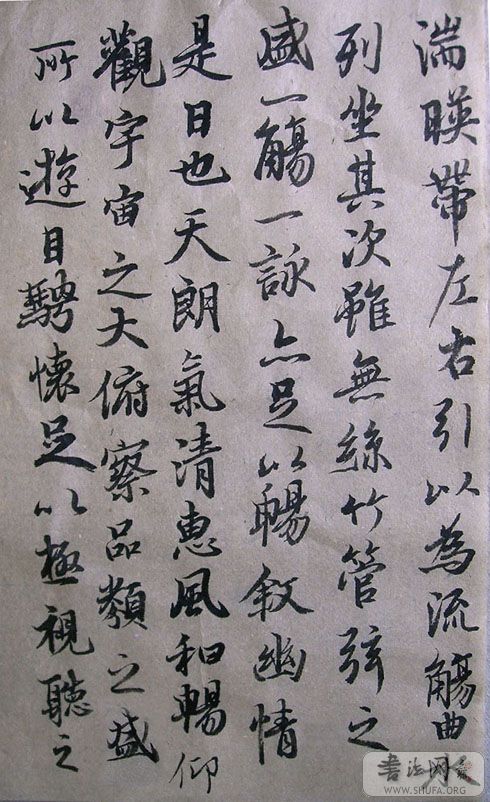 湍暎帶左右引以為流觴曲水
列坐其次雖無絲竹管弦之
盛一觴一詠亦足以暢敘幽情
是日也天朗氣清惠風和暢仰
觀宇宙之大俯察品類之盛
所以遊目騁懷足以極視聽之
书法网
WWW.SHUFA.ORG